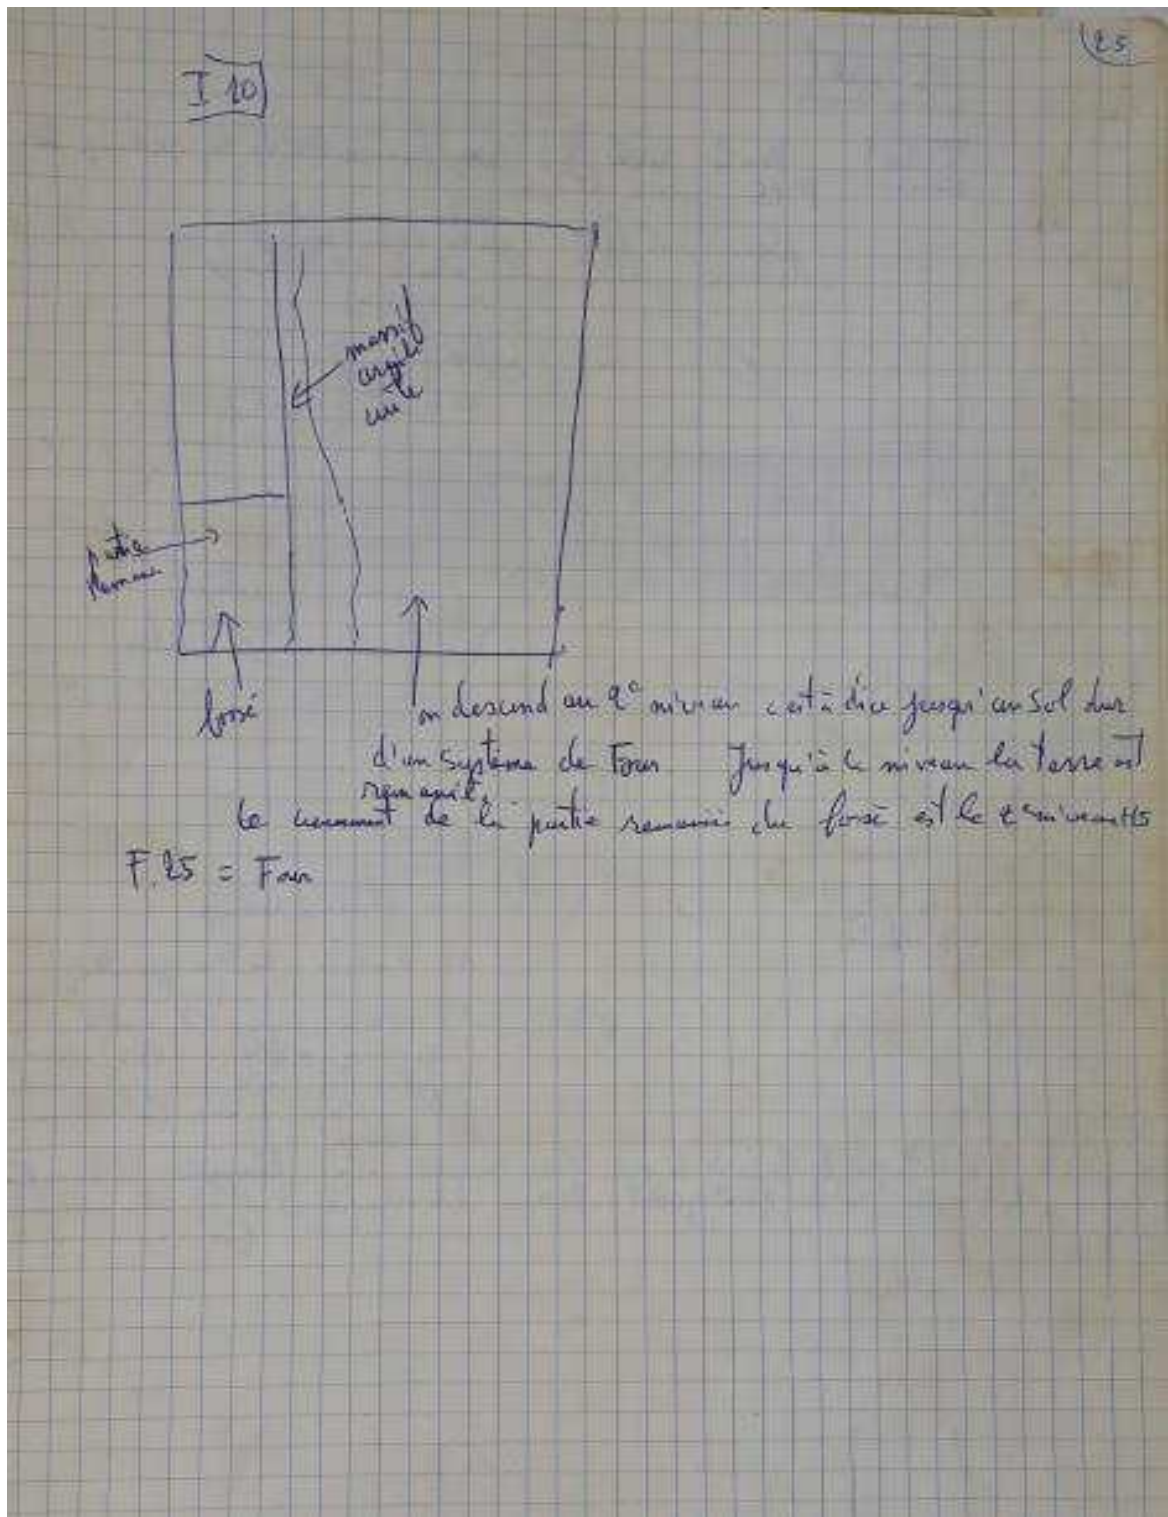 25
I 10
massif
argile
cuite
partie
fossé
on descend au 2° niveau c'est à dire jusqu'au sol dur
d'un système de Four Jusqu'à ce niveau la terre est
remaniée.
Le creusement de la partie remaniée du fossé est le 2e niveau H5
F.25 = Four